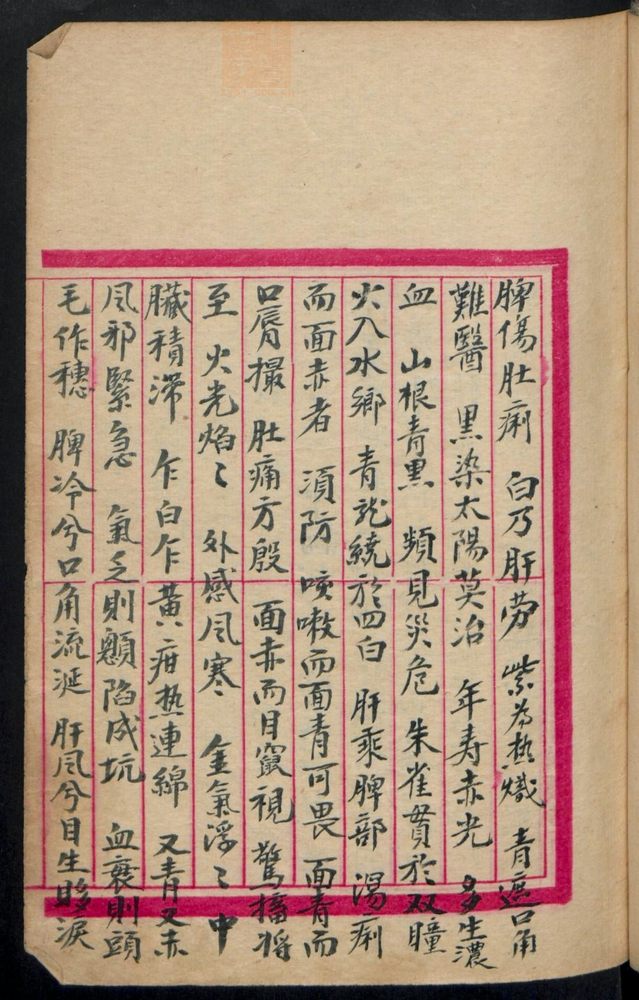 脾傷肚痢 白乃肝劳 紫為热熾 青遮口角
難醫 黒染太陽莫治 年寿赤光 多生濃
血 山根青黒 頻見災危 朱雀貫於双瞳
火入水鄉 青龍繞於四白 肝乘脾部 瀉痢
而面赤者 須防 咳嗽而面青可畏 面青而
口唇撮 肚痛方殷 面赤而目竄視 驚搐将
至 火光焰〻 外感风寒 金氣浮〻 中
臟積滞 乍白乍黄 疳热連綿 又青又赤
风邪緊急 氣乏則顖陷成坑 血衰則頭
毛作穗 脾冷兮口角流涎 肝风兮目生眵淚